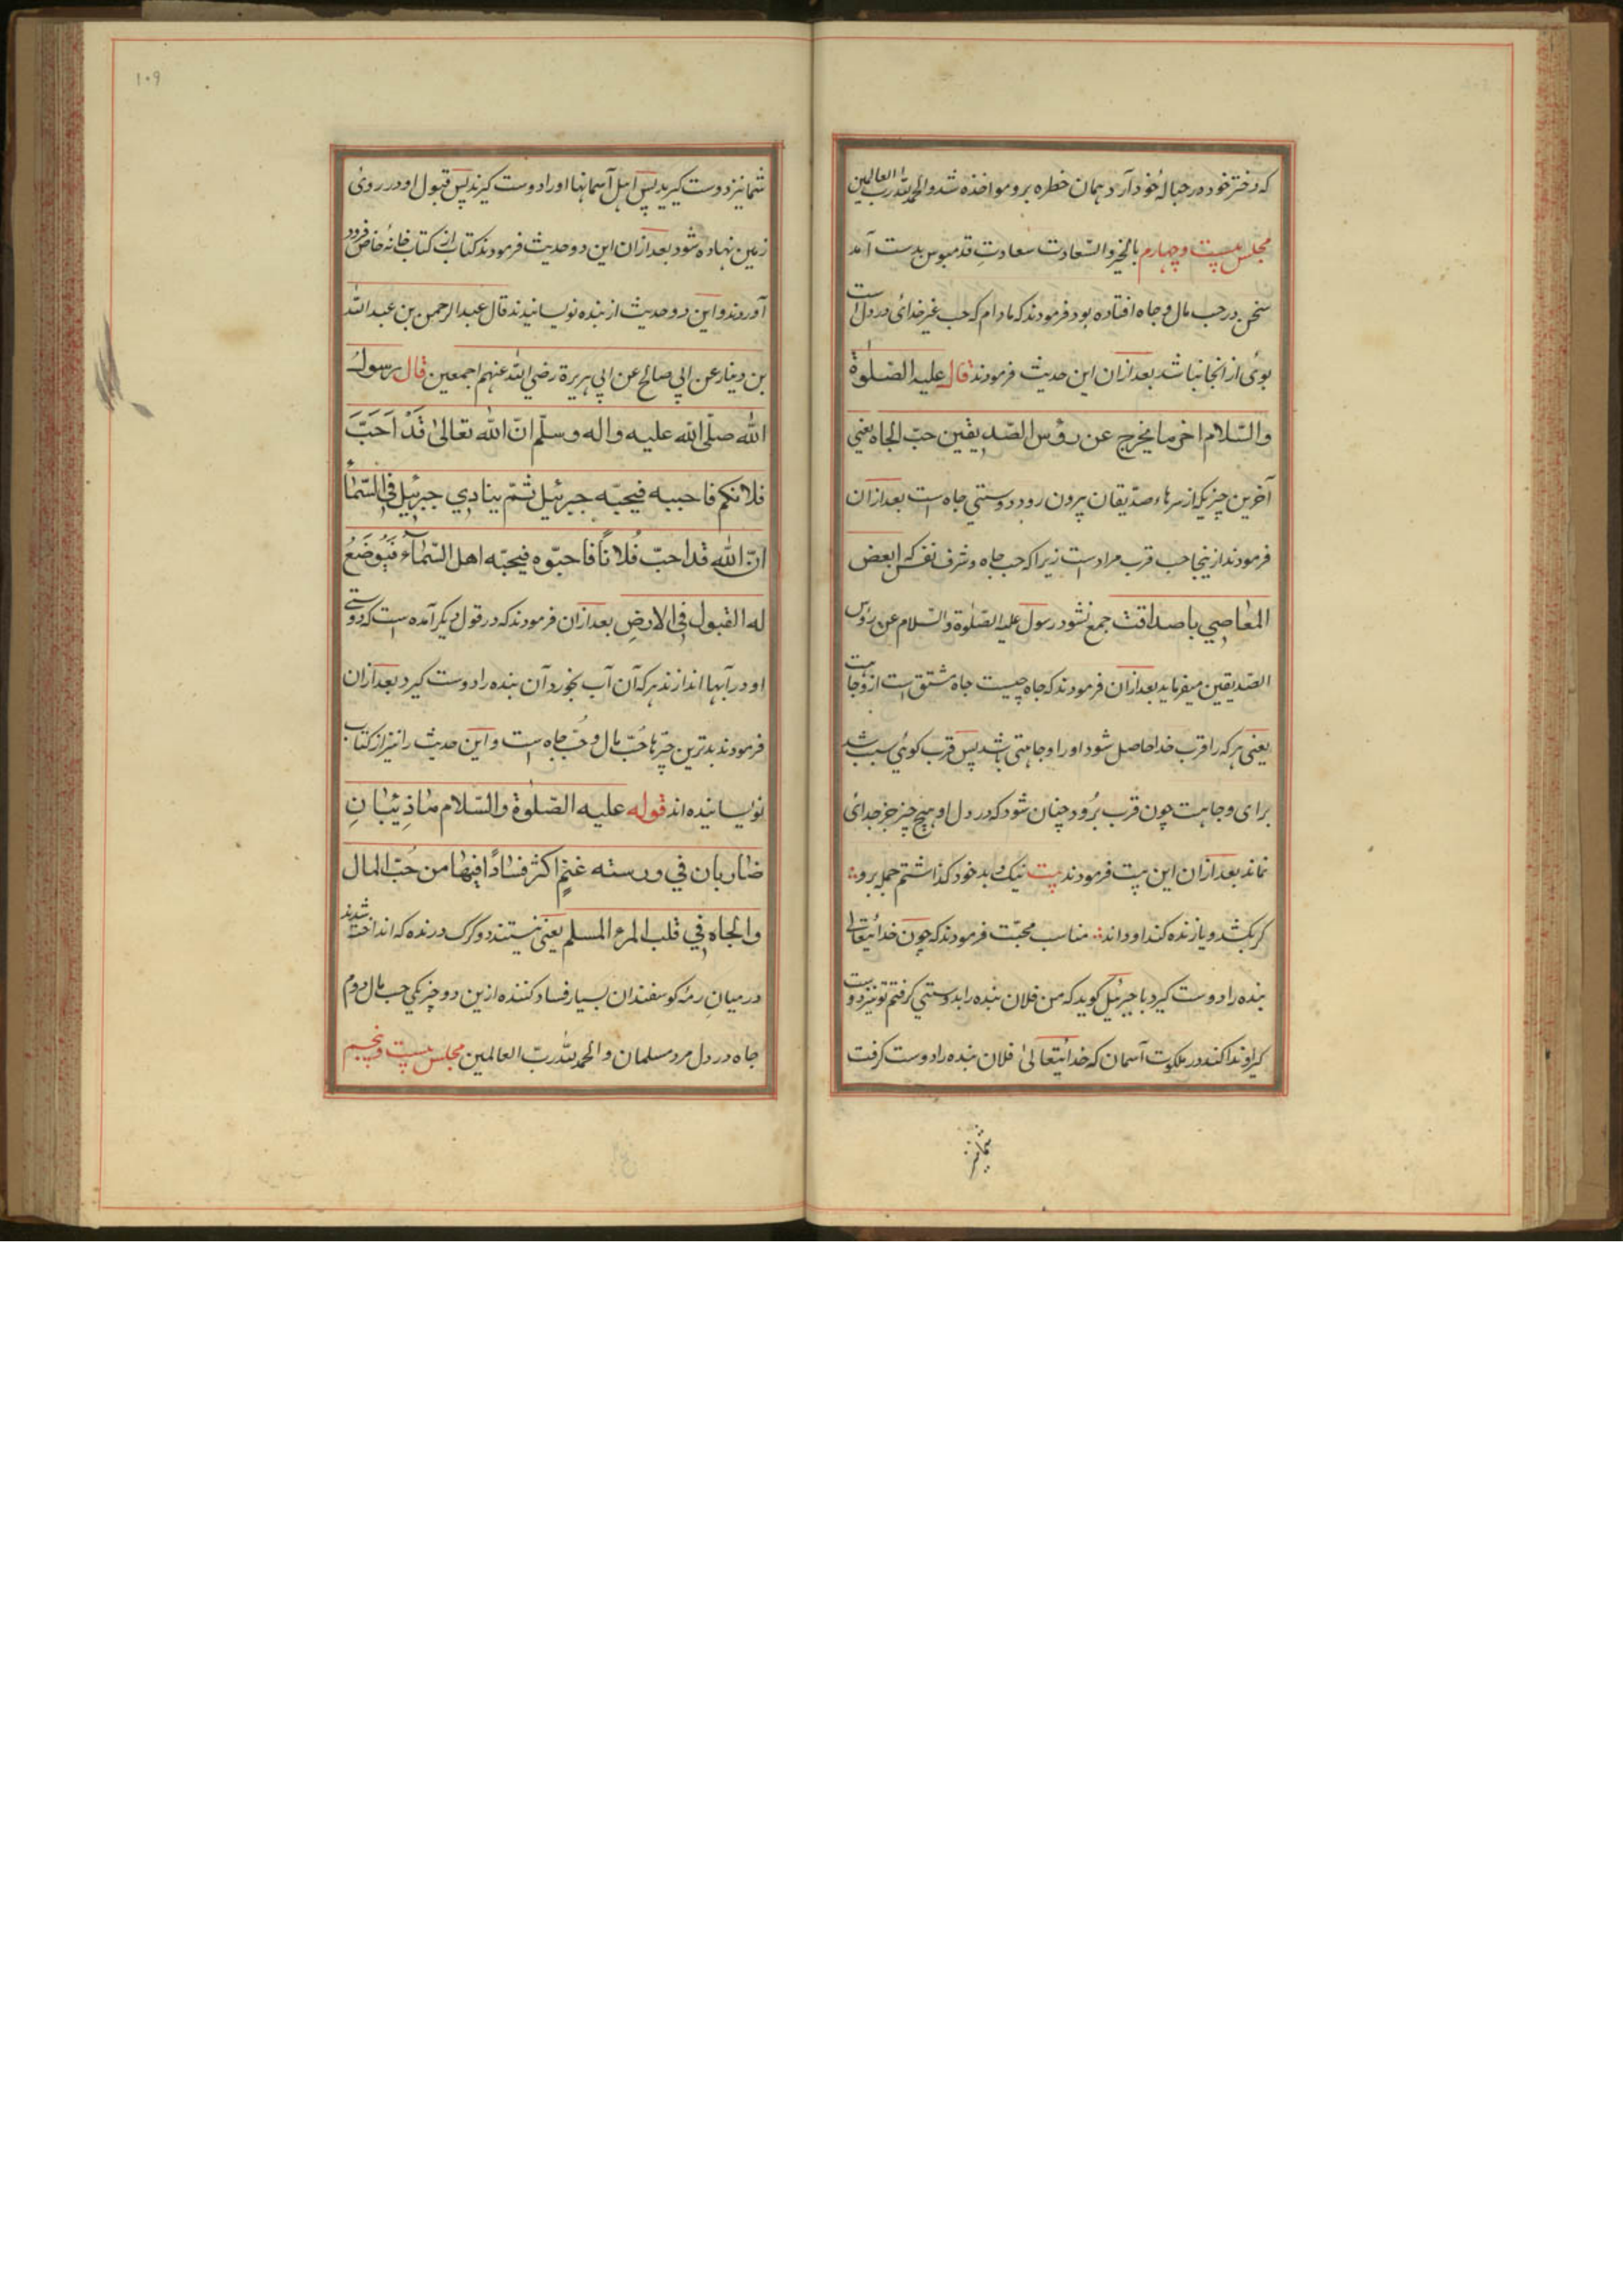 که دختر خود در حبالهٔ خود آرد همان خطره برو مواخذه شد والحمد لله رب العالمین
مجلس بیست و چهارم بالخیر والسّعادت سعادتِ قدمبوس بدست آمد
سخن در حب مال و جاه افتاده بود فرمودند که مادام که حب غیر خدائ در دل است
بوئ از انجا نباشد بعد ازان این حدیث فرمودند قال علیه الصّلوٰة
والسّلام اخر ما یخرج عن رؤس الصّدیقین حبّ الجاه یعني
آخرین چیزیکه از سرهاء صدّیقان بیرون رود دوستي جاه است بعد ازان
فرمودند ازینجا حب قرب مراد است زیرا که حب جاه و شرف نفس که ابعض
المعاصي با صداقت جمع نشود رسول علیه الصّلوٰة والسّلام عن رؤس
الصّدیقین میفرماید بعد ازان فرمودند که جاه چیست جاه مشتق است از وجاهت
یعنی هر که را قرب خدا حاصل شود او را وجاهتی باشد پس قرب کوئي سبب شد
برای وجاهت چون قرب بُرود چنان شود که در دل او هیچ چیز جز خدائ
نماند بعد ازان این بیت فرمودند بیت نیک و بد خود کذاشتم جمله برو
کر بکشد و یا زنده کند او داند مناسب محبّت فرمودند که چون خدائیتعالٰی
بنده را دوست کیرد با جبرئیل کوید که من فلان بنده را بدوستي کرفتم تو نیز دوست
کیر او ندا کند در ملکوت آسمان که خدائیتعالیٰ فلان بنده را دوست کرفت
شما نیز
۱۰۹
شما نیز دوست کیرید پس اهل آسمانها او را دوست کیرند پس قبول او در روئ
زمین نهاده شود بعد ازان این دو حدیث فرمودند کتاب از کتاب خانهٔ خاص فرود
آوردند و این دو حدیث از بنده نویسانیدند قال عبد الرحمن بن عبد الله
بن دینار عن ابي صالح عن ابي هریرة رضي الله عنهم اجمعین قال رسول
الله صلّی الله علیه واله وسلّم انّ الله تعالیٰ قَدْ اَحَبَّ
فلانکم فاحببه فیحبّه جبرئیل ثمّ ینادي جبرئیل في السّماء
انّ الله قد احبّ فُلاناً فاحبّوه فیحبّه اهل السّمآء فَیُوضَعُ
له القبول في الارضِ بعد ازان فرمودند که در قول دیکر آمده است که دوستي
او در آبها اندازند هر که آن آب بخورد آن بنده را دوست کیرد بعد ازان
فرمودند بدترین چیزها حُبّ مال و حُبّ جاه است و این حدیث را نیز از کتاب
نویسانیده اند قوله علیه الصّلوٰة والسّلام ماذِئبانِ
ضاربان في ورسته غنمٍ اکثر فسادًا فیها من حُبّ المال
والجاه في قلب المرء المسلم یعنی نیستند دو کرک درنده که انداخته شدند
در میانِ رمهٔ کوسفندان بسیار فساد کننده ازین دو چیز یکي حب مال دوم
جاه در دل مرد مسلمان والحمد لله ربّ العالمین مجلس بیست و پنجم